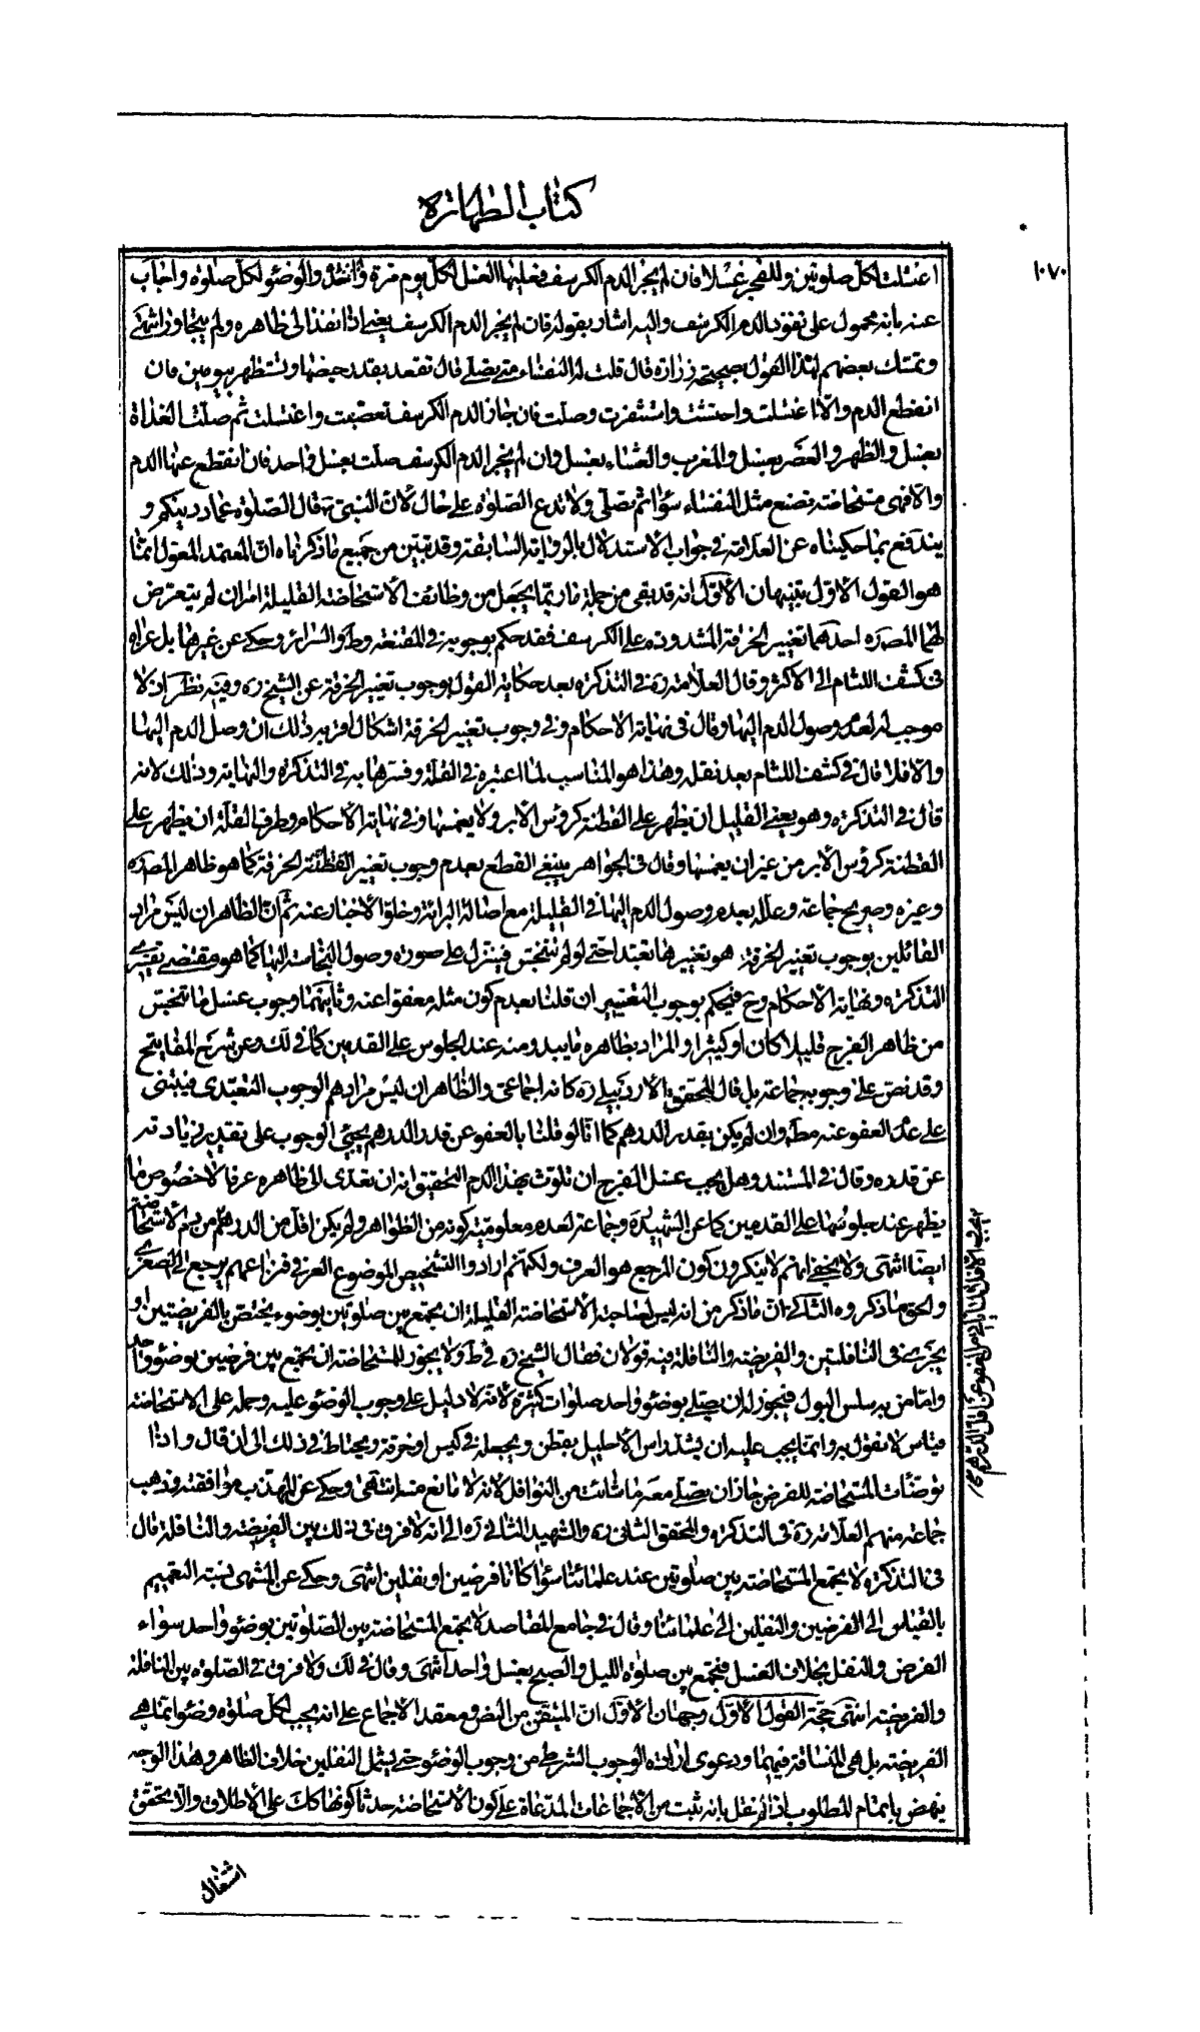 كتاب الطهارة
١٠٧٠
اغتسلت لكل صلوتين وللفجر غسلا فان لم يجز الدم الكرسف فعليها الغسل لكل يوم مرة والوضوء لكل صلوة واجاب
عنه بانه محمول على نفوذ الدم الكرسف واليه اشار بقوله فان لم يجز الدم الكرسف يعنى اذا نفذ الى ظاهره ولم يتجاوز انتهى
وتمسك بعضهم لهذا القول بصحيحة زرارة قال قلت له النفساء متى تصلى قال تقعد بقدر حيضها وتستظهر بيومين فان
انقطع الدم والا اغتسلت واحتشت واستثفرت وصلت فان جاز الدم الكرسف تعصبت واغتسلت ثم صلت الغداة
بغسل والظهر والعصر بغسل والمغرب والعشاء بغسل وان لم يجز الدم الكرسف صلت بغسل واحد فان انقطع عنها الدم
والا فهى مستحاضة تصنع مثل النفساء سواء ثم تصلى ولا تدع الصلوة على حال لان النبى ص قال الصلوة عماد دينكم و
يندفع بما حكيناه عن العلامة فى جواب الاستدلال بالرواية السابقة وقد تبين من جميع ما ذكرناه ان المعتمد المعول انما
هو القول الاول تنبيهان الاول انه قد بقى من جملة ما ربما يجعل من وظائف الاستحاضة القليلة امران لم يتعرض
لهما المص ره احدهما تغيير الخرقة المشدودة على الكرسف فقد حكم بوجوبه فى المقنعة وط والسرائر وحكى عن غيرها بل عزاه
فى كشف اللثام الى الاكثر وقال العلامة ره فى التذكرة بعد حكاية القول بوجوب تغيير الخرقة عن الشيخ ره وفيه نظر اذ لا
موجب له لعدم وصول الدم اليها وقال فى نهاية الاحكام وفى وجوب تغيير الخرقة اشكال اقربه ذلك ان وصل الدم اليها
والا فلا قال فى كشف اللثام بعد نقله وهذا هو المناسب لما اعتبره فى القلة وفسرها به فى التذكرة والنهاية وذلك لانه
قال فى التذكرة وهو يعنى القليل ان يظهر على القطنة كرؤس الابر ولا يغمسها وفى نهاية الاحكام وطرف القلة ان يظهر على
القطنة كرؤس الابر من غير ان يغمسها وقال فى الجواهر ينبغى القطع بعدم وجوب تغيير الخرقة كما هو ظاهر المص ره
وغيره وصريح جماعة وعلله بعدم وصول الدم اليها فى القليلة مع اصالة البرائة وخلو الاخبار عنه ثم ان الظاهر ان ليس مراد
القائلين بوجوب تغيير الخرقة هو تغييرها تعبدا حتى لو لم تتنجس فينزل على صورة وصول النجاسة اليها كما هو مقتضى تفسيرى
التذكرة ونهاية الاحكام وح فيحكم بوجوب التغيير ان قلنا بعدم كون مثله معفوا عنه وثانيهما وجوب غسل ما تنجس
من ظاهر الفرج قليلا كان او كثيرا والمراد بظاهره ما يبدو منه عند الجلوس على القدمين كما فى لك وعن شرح المفاتيح
وقد نص على وجوبه جماعة بل قال المحقق الاردبيلى ره كانه اجماعى والظاهر ان ليس مرادهم الوجوب التعبدى فيبتنى
على عدم العفو عنه مط وان لم يكن بقدر الدرهم كما انا لو قلنا بالعفو عن قدر الدرهم يجئ الوجوب على تقدير زيادته
عن قدره وقال فى المستند وهل يجب غسل الفرج ان تلوث بهذا الدم التحقيق انه ان تعدى الى ظاهره عرفا لا خصوص ما
يظهر عند جلوسها على القدمين كما عن الشهيد ره وجماعة لعدم معلومية كونه من الظواهر ولم يكن اقل من الدرهم من دم الاستحاضة
ايضا انتهى ولا يخفى انهم لا ينكرون كون المرجع هو العرف ولكنهم ارادوا التشخيص الموضوع العرفى فنزاعهم يرجع الى الصغرى
والحق ما ذكروه الثانى ان ما ذكر من انه ليس لصاحبة الاستحاضة القليلة ان تجمع بين صلوتين بوضوء يختص بالفريضتين او
يجرى فى النافلتين والفريضة والنافلة فيه قولان فقال الشيخ ره فى ط ولا يجوز للمستحاضة ان تجمع بين فرضين بوضوء واحد
واما من به سلس البول فيجوز له ان يصلى بوضوء واحد صلوات كثيرة لانه لا دليل على وجوب الوضوء عليه وحمله على الاستحاضة
قياس لا نقول به وانما يجب عليه ان يشد راس الاحليل بقطن ويجعله فى كيس او خرقة ويحتاط فى ذلك الى ان قال واذا
توضأت المستحاضة للفرض جاز ان تصلى معه ما شائت من النوافل لانه لا مانع منه انتهى وحكى عن المهذب موافقته وذهب
جماعة منهم العلامة ره فى التذكرة والمحقق الثانى ره والشهيد الثانى ره الى انه لا فرق فى ذلك بين الفريضة والنافلة قال
فى التذكرة لا تجمع المستحاضة بين صلوتين عند علمائنا سواء كانا فرضين او نفلين انتهى وحكى عن المنتهى نسبة التعميم
بالقياس الى الفرضين والنفلين الى علمائنا وقال فى جامع المقاصد لا تجمع المستحاضة بين الصلوتين بوضوء واحد سواء
الفرض والنفل بخلاف الغسل فتجمع بين صلوة الليل والصبح بغسل واحد انتهى وقال فى لك ولا فرق فى الصلوة بين النافلة
والفريضة انتهى حجة القول الاول وجهان الاول ان المتيقن من النص ومعقد الاجماع على انه يجب لكل صلوة وضوء انما هى
الفريضة بل هى المنساقة فيهما ودعوى ارادة الوجوب الشرطى من وجوب الوضوء حتى يشمل النفلين خلاف الظاهر وهذا الوجه
ينهض باتمام المطلوب اذا لم نقل بانه ثبت من الاجماعات المدعاة على كون الاستحاضة حدثا كونها كك على الاطلاق والا يتحقق
اشغال